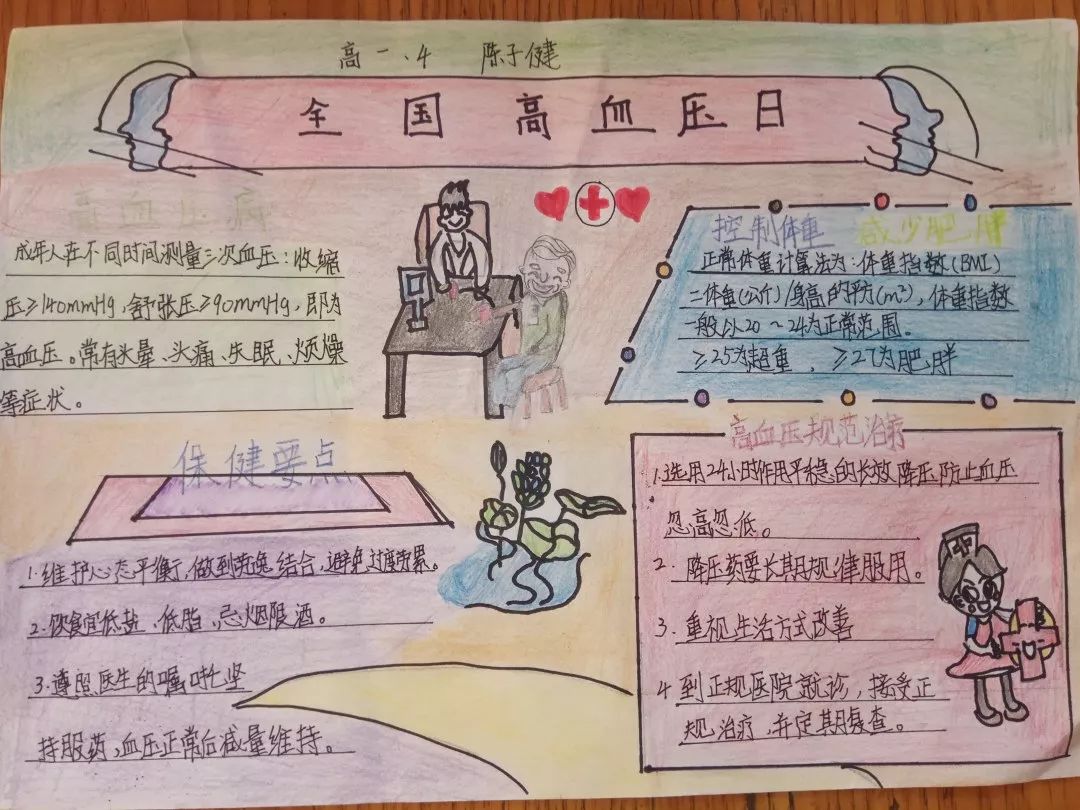 高一、4 陈子健
全国高血压日
高血压病
成年人在不同时间测量三次血压：收缩
压≥140mmHg，舒张压≥90mmHg，即为
高血压。常有头晕、头痛、失眠、烦燥
等症状。
控制体重 减少肥胖
正常体重计算法为：体重指数(BMI)
=体重(公斤)/身高的平方(m²)，体重指数
一般以20～24为正常范围。
≥25为超重，≥27为肥胖
保健要点
1.维护心态平衡，做到劳逸结合，避免过度劳累。
2.饮食宜低盐、低脂，忌烟限酒。
3.遵照医生的嘱咐坚
持服药，血压正常后减量维持。
高血压规范治疗
1.选用24小时作用平稳的长效降压防止血压
忽高忽低。
2.降压药要长期规律服用。
3.重视生活方式改善
4 到正规医院就诊，接受正
规治疗，并定期复查。